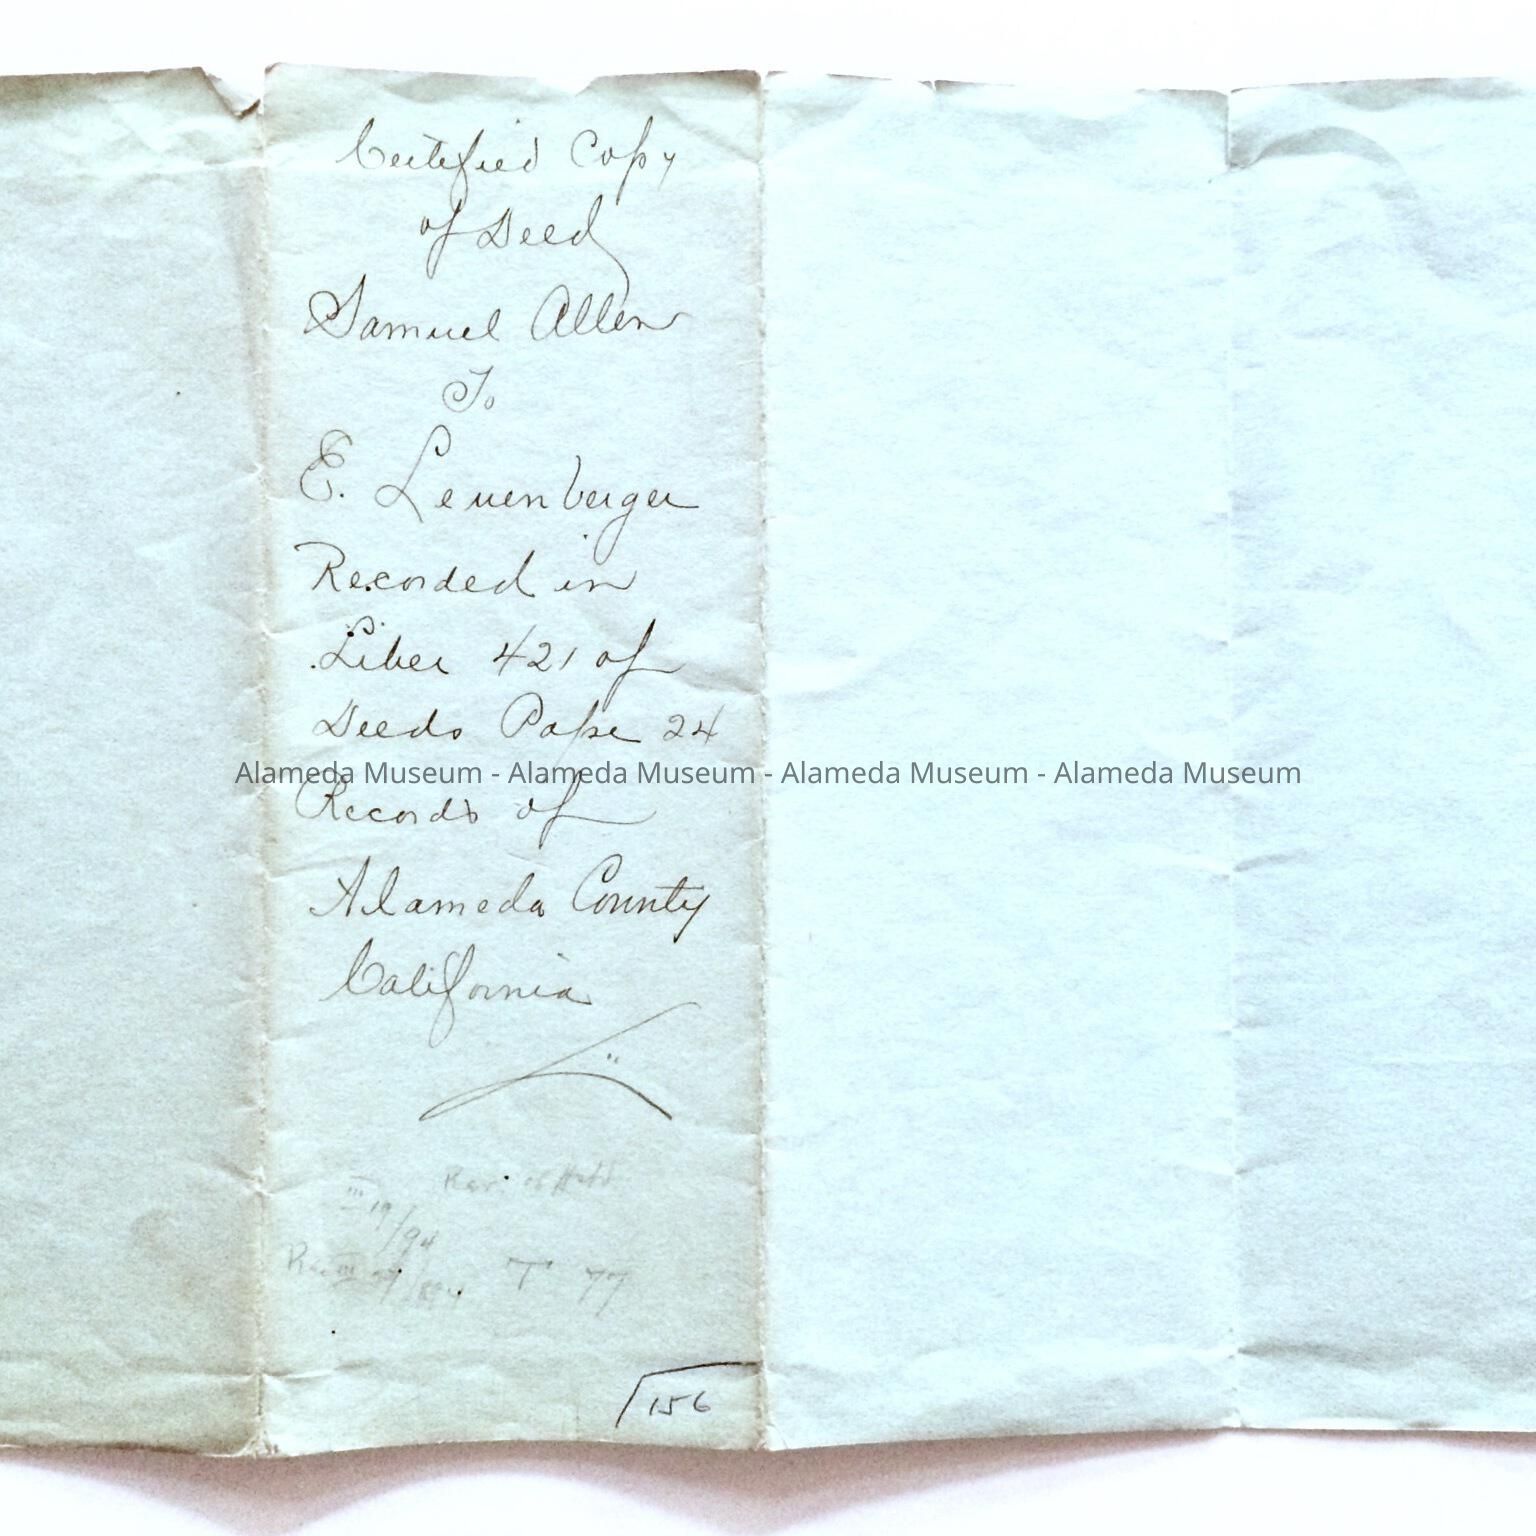 Certified Copy
of Deed
Samuel Allen
To
E. Leuenberger
Recorded in
Liber 421 of
Deeds Page 24
Alameda Museum - Alameda Museum - Alameda Museum - Alameda Museum
Records of
Alameda County
California
III 19/94
T 77
156